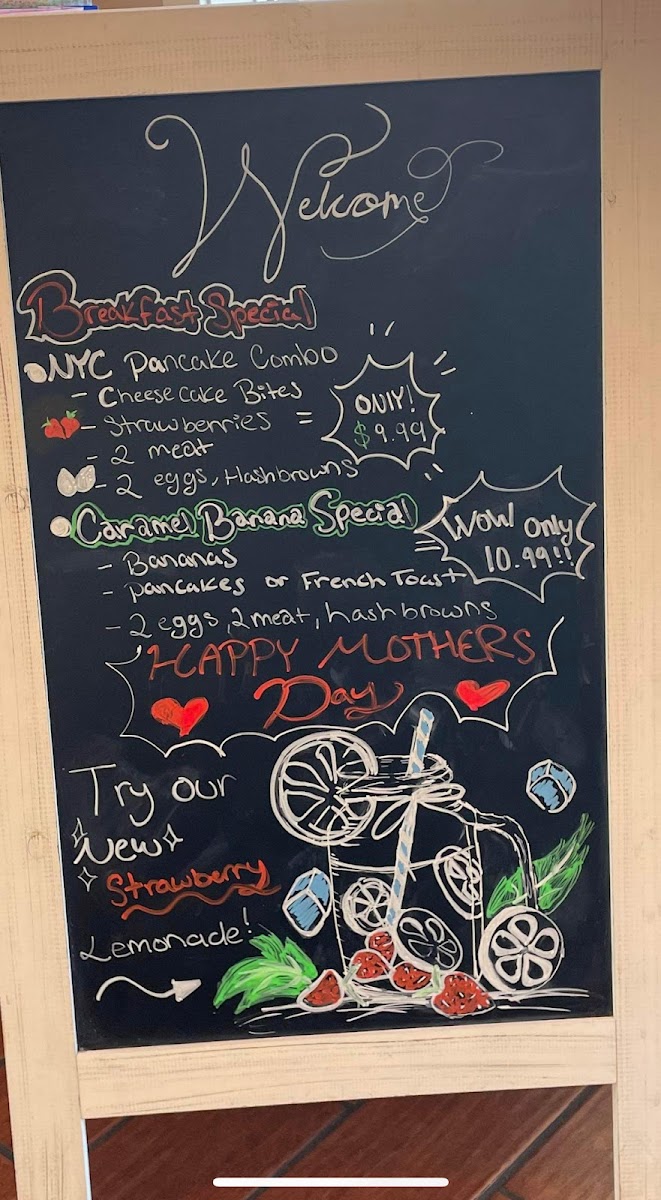 Welcome
Breakfast Special
NYC Pancake Combo
- Cheesecake Bites
- Strawberries =
ONLY!
$9.99
- 2 meat
- 2 eggs, Hashbrowns
Caramel Banana Special
= WOW! only
10.99!!
- Bananas
- pancakes or French Toast
- 2 eggs, 2 meat, hashbrowns
HAPPY MOTHERS
Day
Try our
New
Strawberry
Lemonade!